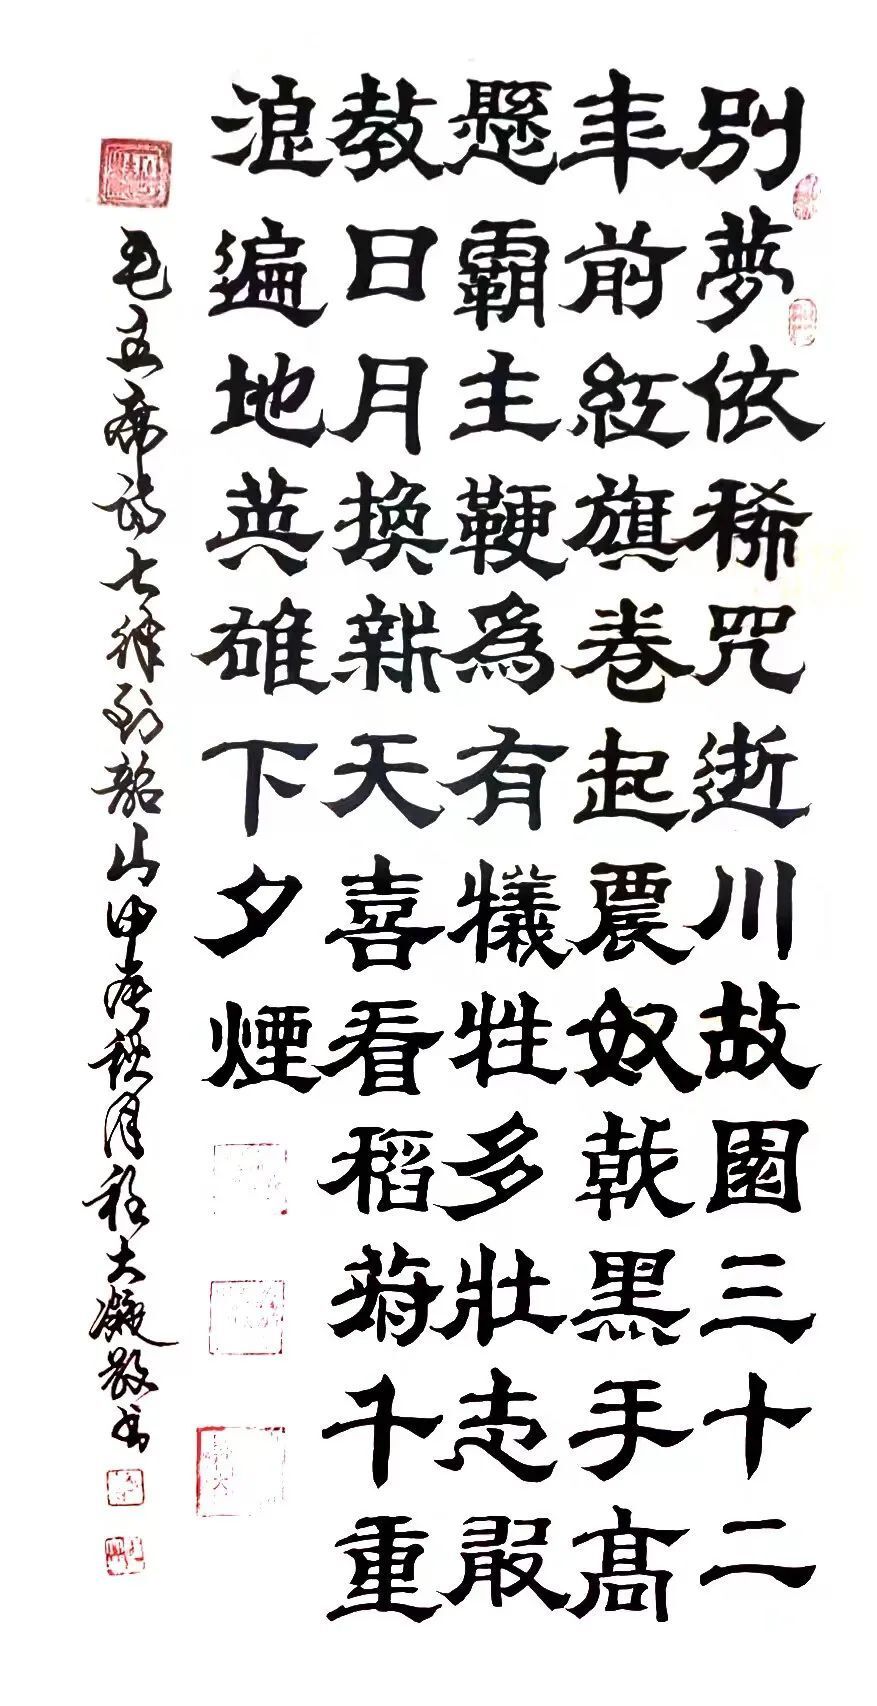 別夢依稀咒逝川故園三十二
年前紅旗卷起農奴戟黑手高
懸霸主鞭為有犧牲多壯志敢
教日月換新天喜看稻菽千重
浪遍地英雄下夕煙
毛主席詩七律到韶山甲辰秋月程大凝敬書